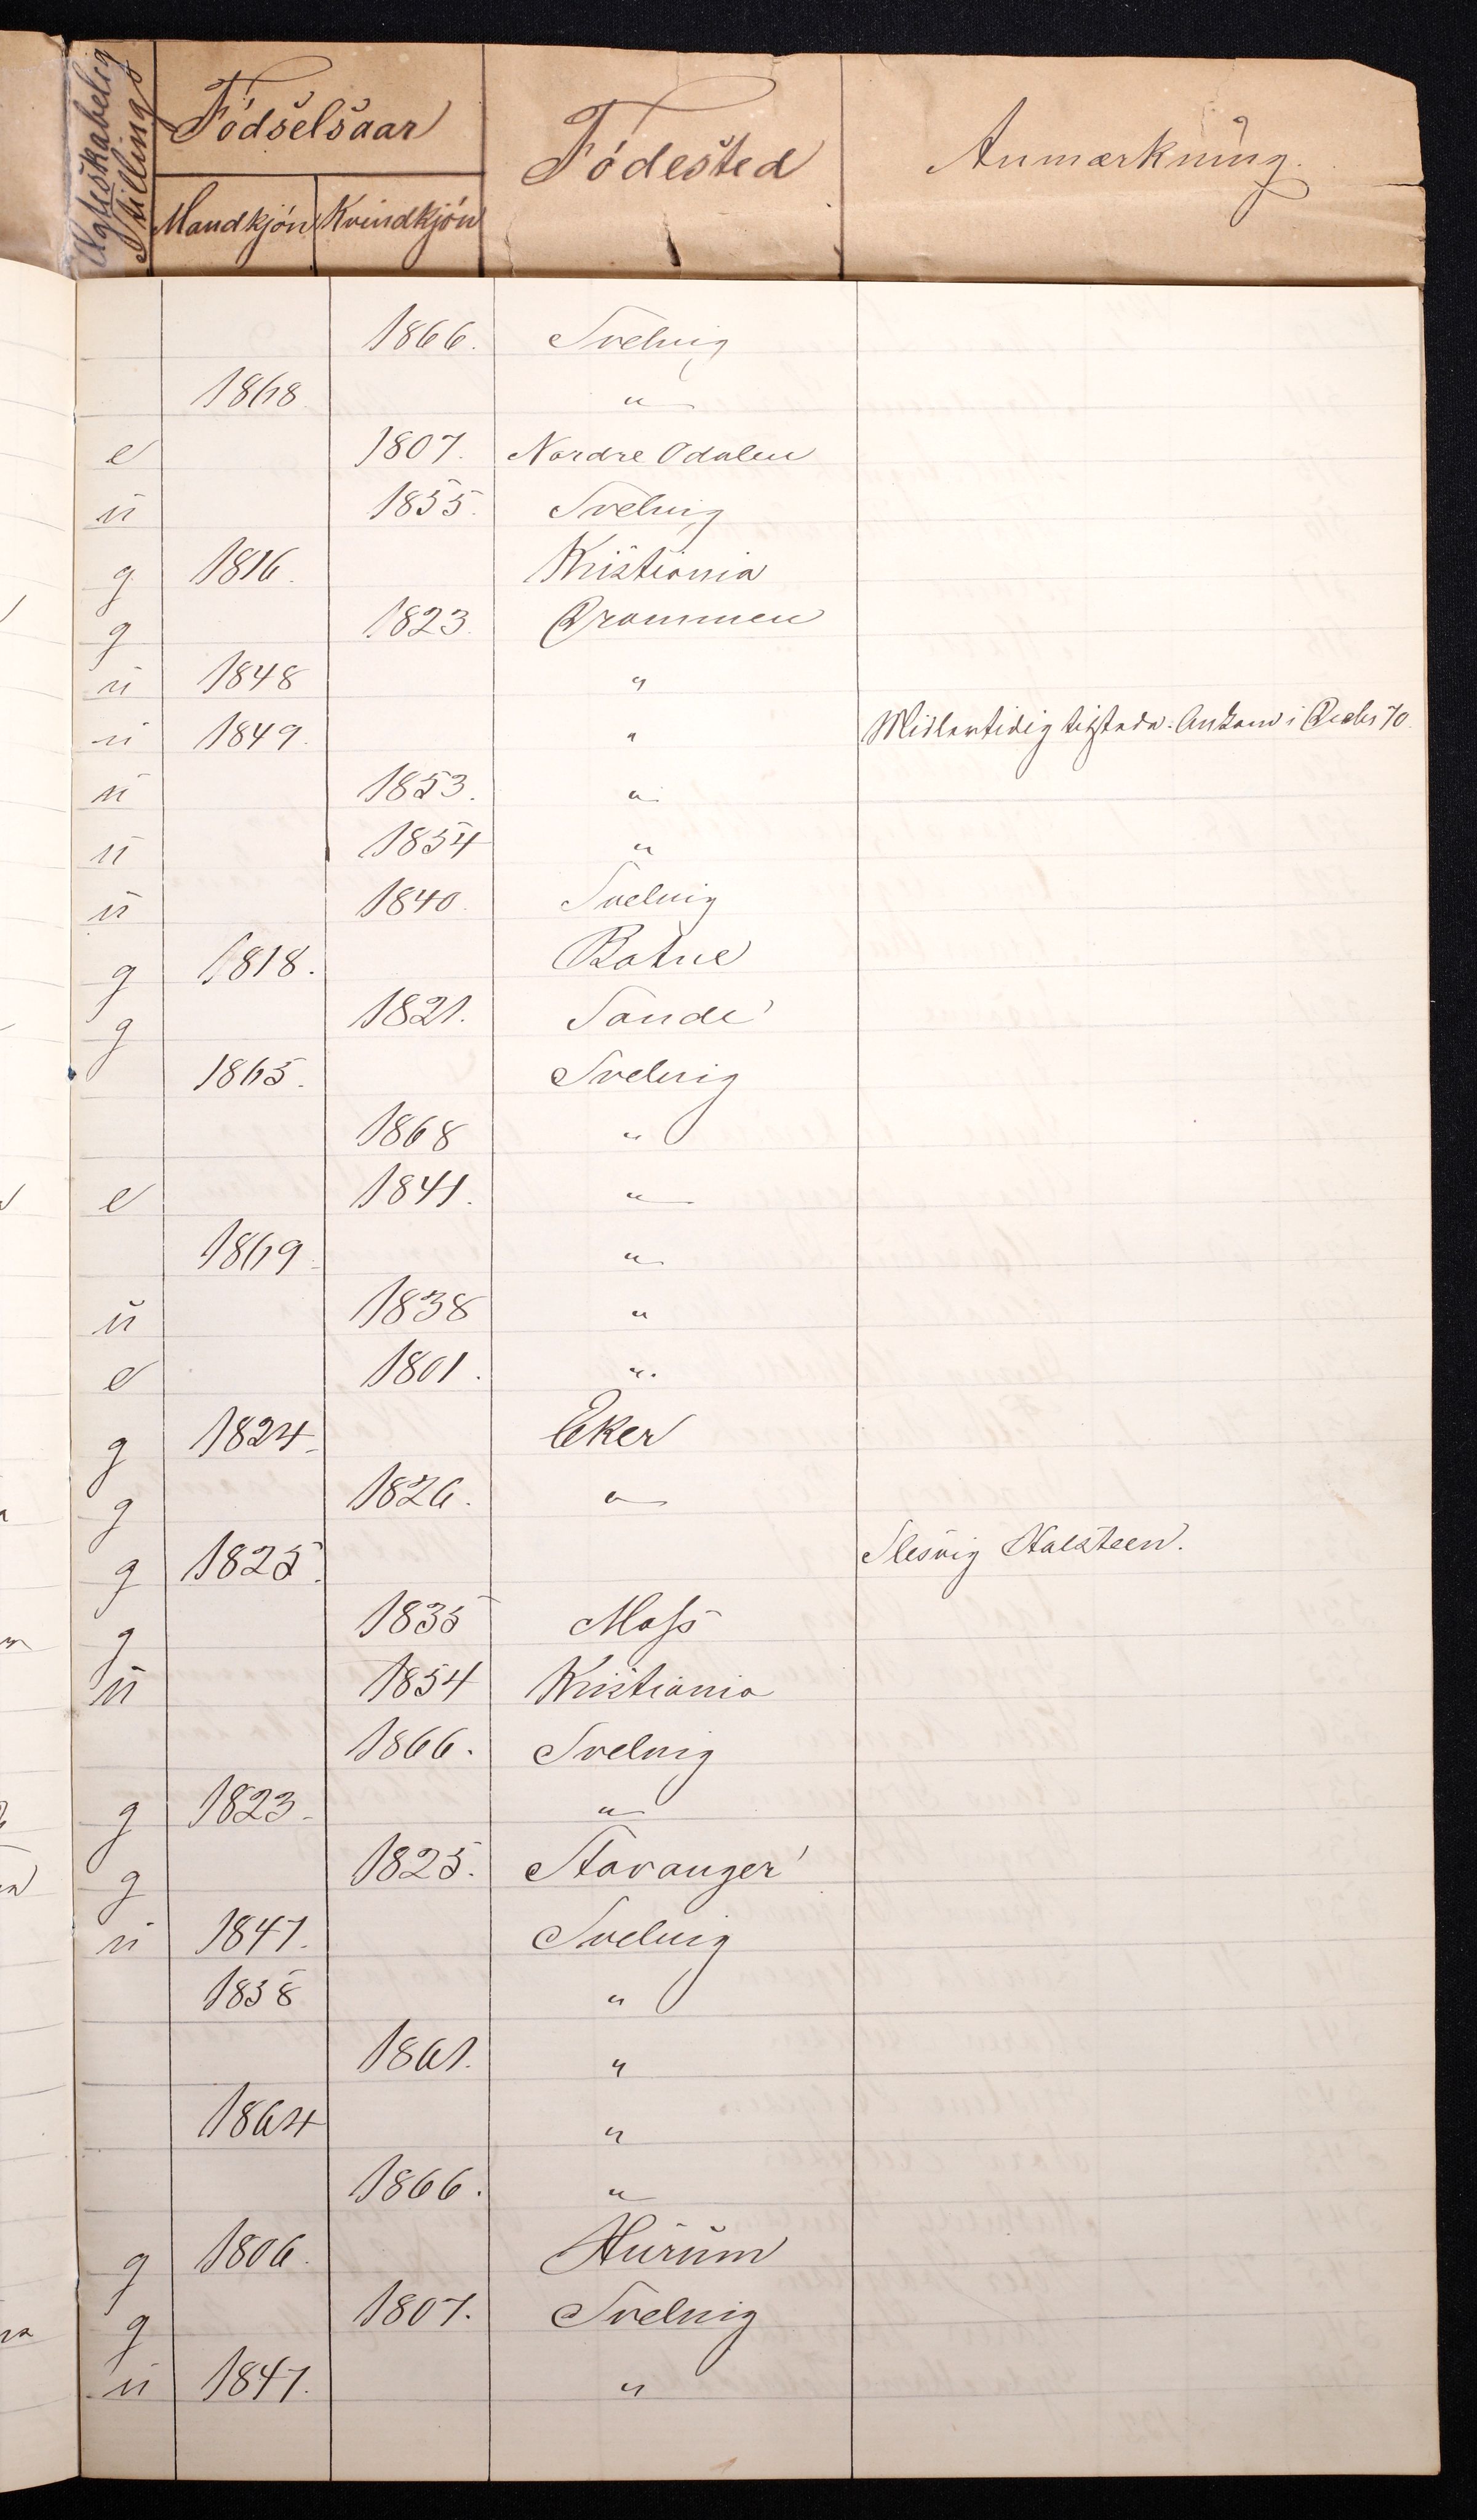 Ægteskabelig Stilling
Födselsaar
Födested
Anmærkning.
Mandkjön Kvindkjön
1866. Svelvig
1868 "
e 1807. Nordre Odalen
u 1855. Svelvig
g 1816. Kristiania
g 1823. Drammen
u 1848 "
u 1849. " Midlertidig tilstede. Ankom i Decbr 70.
u 1853. "
u 1854 "
u 1840. Svelvig
g 1818. Botne
g 1821. Sande
1865. Svelvig
1868 "
e 1841. "
1869. "
u 1838 "
e 1801. "
g 1824. Eker
g 1826. "
g 1825. Slesvig Holsteen.
g 1835 Moss
u 1854 Kristiania
1866. Svelvig
g 1823. "
g 1825. Stavanger
u 1847. Svelvig
1858 "
1861. "
1864 "
1866. "
g 1806. Hurum
g 1807. Svelvig
u 1847. "